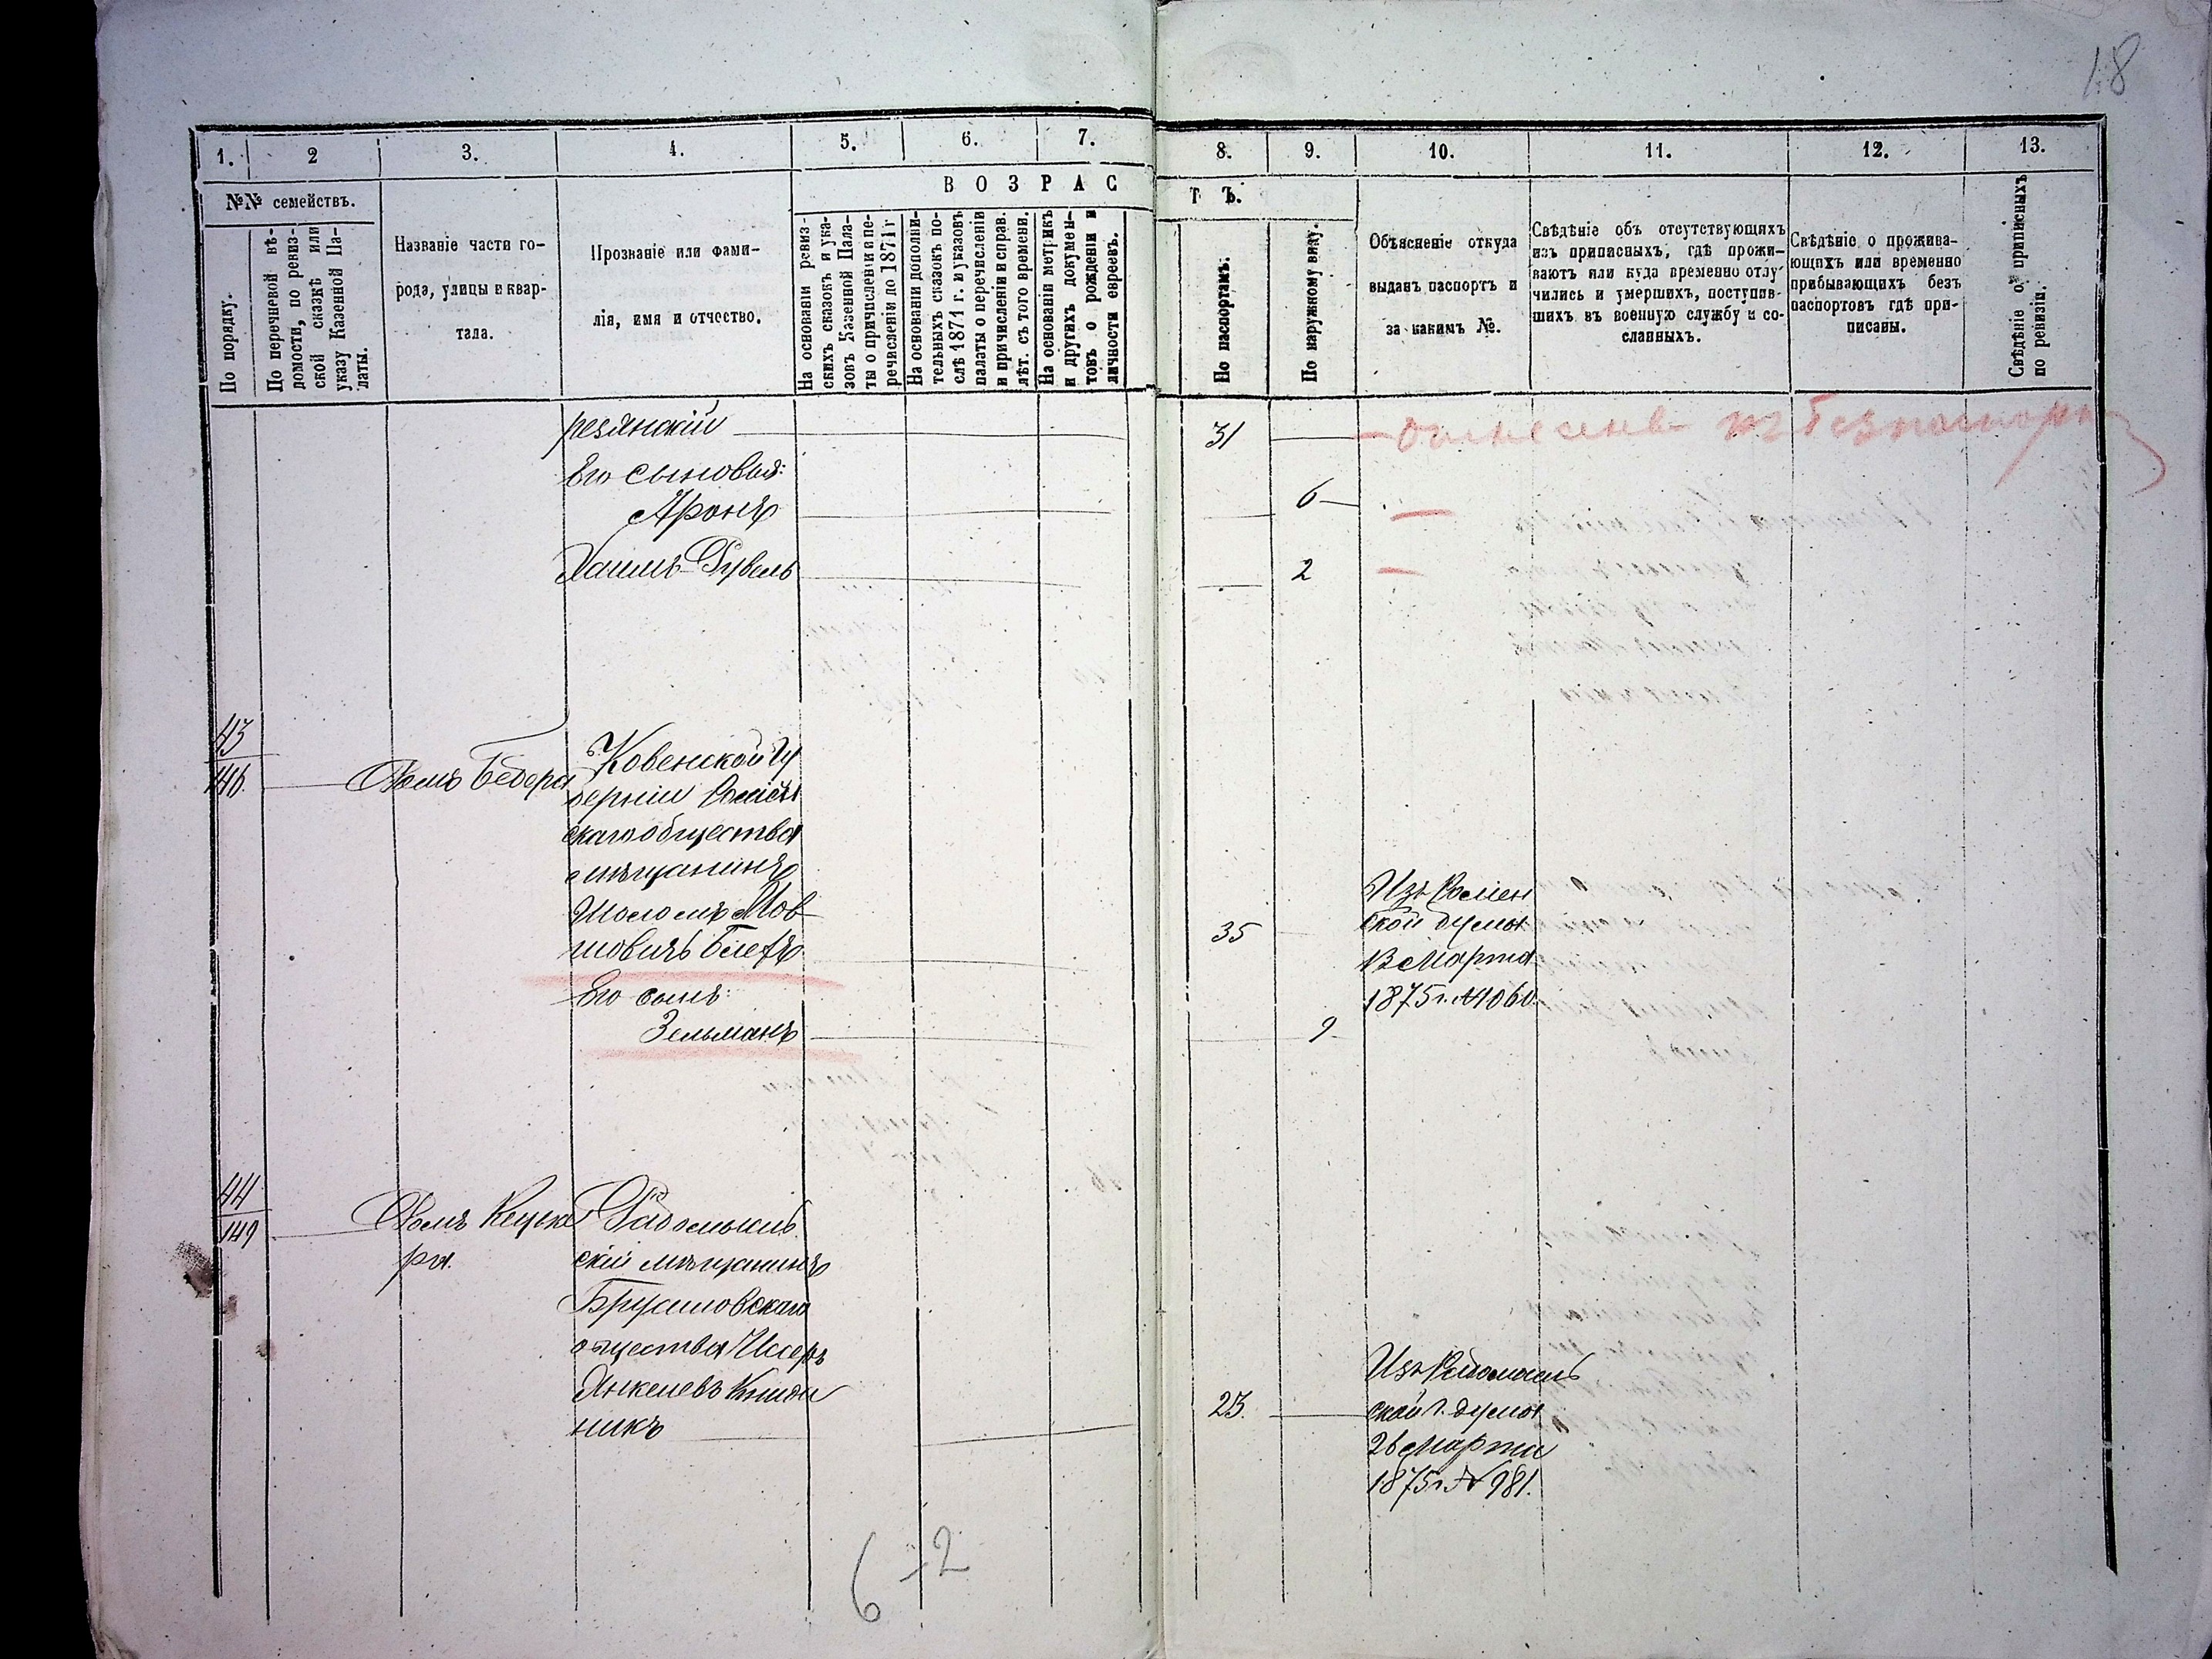 18
1. 2 3. 4. 5. 6. 7. 8. 9. 10. 11. 12. 13.
№№ семействъ.
По порядку.
По перечневой вѣ-
домости, по ревиз-
ской сказкѣ или
указу Казенной Па-
латы.
Названіе части го-
рода, улицы и квар-
тала.
Прозваніе или фами-
лія, имя и отчество.
ВОЗРАСТЪ.
На основаніи ревиз-
скихъ сказокъ и ука-
зовъ Казенной Пала-
ты о причисленіи и пе-
речисленіи до 1871 г
На основаніи дополни-
тельныхъ сказокъ по-
слѣ 1871 г. и указовъ
палаты о перечисленіи
и причисленіи и справ.
лѣт. съ того времени.
На основаніи метрикъ
и другихъ докумен-
товъ о рожденіи и
личности евреевъ.
По паспортамъ.
По наружному виду.
Объясненіе откуда
выданъ паспортъ и
за какимъ №.
Свѣдѣніе объ отсутствующихъ
изъ приписныхъ, гдѣ прожи-
ваютъ или куда временно отлу-
чились и умершихъ, поступив-
шихъ въ военную службу и со-
сланныхъ.
Свѣдѣніе о прожива-
ющихъ или временно
прибывающихъ безъ
паспортовъ гдѣ при-
писаны.
Свѣдѣніе о приписныхъ
по ревизіи.
резянскій 31
Его сыновья:
Аронъ 6
Хаимъ-Рувель 2
43
146 Домъ Бедера
Ковенской Гу
берніи Росіен
скаго общества
мѣщанинъ
Шоломъ Мов
шовичъ 35
Его сынъ:
Зельманъ 9
Изъ Росіен
ской думы
13 Марта
1875 г. № 1060.
44
149
Домъ
ра.
Радомысль
скій мѣщанинъ
Брусиловскаго
общества
Янкелевъ
никъ 23.
Изъ Радомысль
ской г. думы
26 Марта
1875 г. № 981.
6 - 2